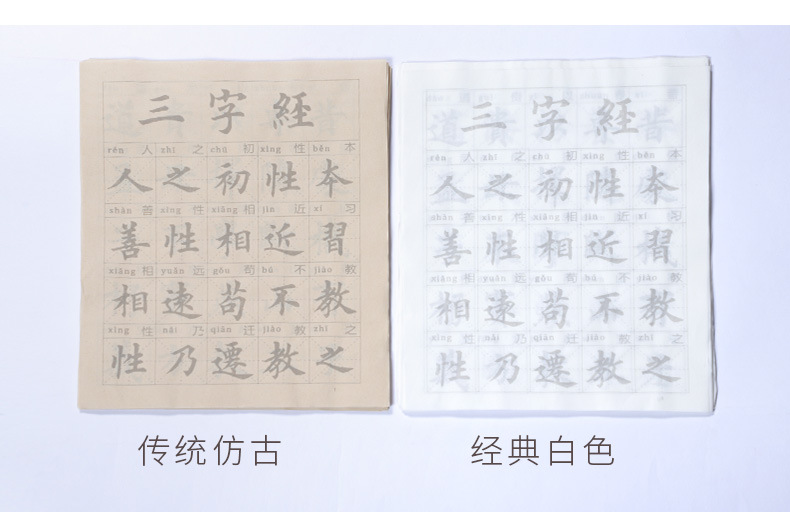 三字經
rén 人 zhī 之 chū 初 xìng 性 běn 本
人之初性本
shàn 善 xìng 性 xiāng 相 jìn 近 xí 习
善性相近習
xiāng 相 yuǎn 远 gǒu 苟 bù 不 jiào 教
相遠苟不教
xìng 性 nǎi 乃 qiān 迁 jiào 教 zhī 之
性乃遷教之
三字經
rén 人 zhī 之 chū 初 xìng 性 běn 本
人之初性本
shàn 善 xìng 性 xiāng 相 jìn 近 xí 习
善性相近習
xiāng 相 yuǎn 远 gǒu 苟 bù 不 jiào 教
相遠苟不教
xìng 性 nǎi 乃 qiān 迁 jiào 教 zhī 之
性乃遷教之
传统仿古
经典白色